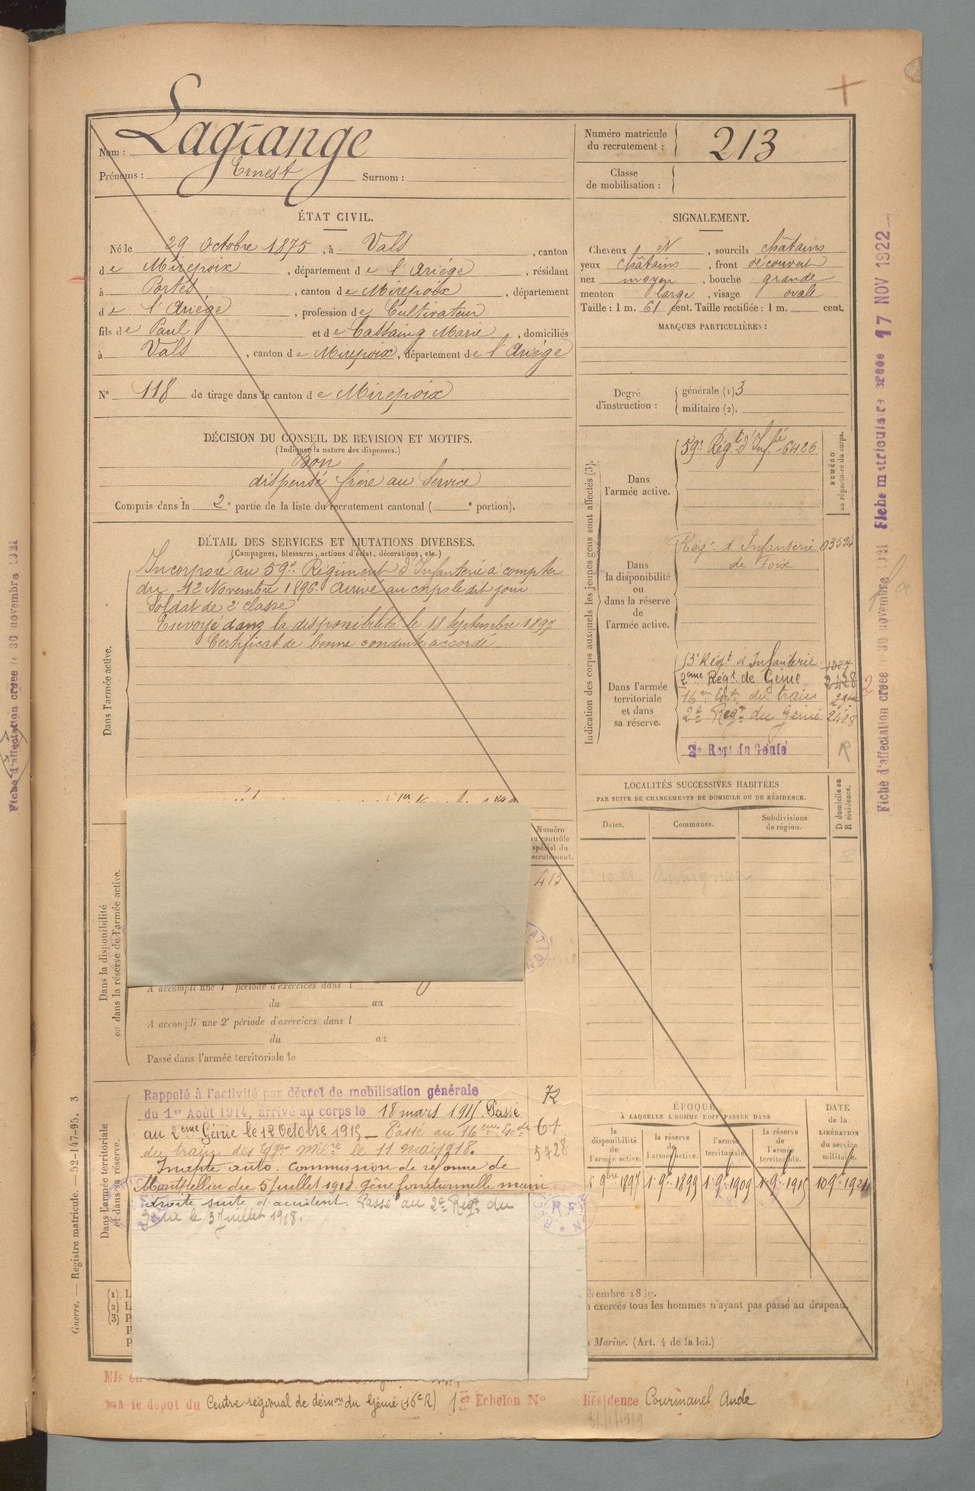 Nom : Lagrange
Prénoms : Ernest Surnom :
Numéro matricule du recrutement : 213
Classe de mobilisation :
ÉTAT CIVIL.
Né le 29 Octobre 1875, à Vals, canton
de Mirepoix, département de l'Ariège, résidant
à Portes, canton de Mirepoix, département
de l'Ariège, profession de Cultivateur
fils de Paul et de Cassaing Marie, domiciliés
à Vals, canton de Mirepoix, département de l'Ariège
N° 118 de tirage dans le canton de Mirepoix
SIGNALEMENT.
Cheveux N, sourcils châtains
yeux châtains, front découvert
nez moyen, bouche grande
menton large, visage ovale
Taille : 1 m. 61 cent. Taille rectifiée : 1 m. cent.
MARQUES PARTICULIÈRES :
Degré d'instruction : générale (1) 3
militaire (2).
DÉCISION DU CONSEIL DE REVISION ET MOTIFS.
(Indiquer la nature des dispenses.)
Bon
dispensé frère au service
Compris dans la 2e partie de la liste du recrutement cantonal ( e portion).
DÉTAIL DES SERVICES ET MUTATIONS DIVERSES.
(Campagnes, blessures, actions d'éclat, décorations, etc.)
Dans l'armée active.
Incorporé au 59e Régiment d'Infanterie à compter
du 12 Novembre 1896. Arrivé au corps le dit jour
Soldat de 2e classe
Envoyé dans la disponibilité le 18 Septembre 1897
Certificat de bonne conduite accordé
Indication des corps auxquels les jeunes gens sont affectés (3).
NUMÉRO au répertoire du corps.
Dans l'armée active.
59e Régt d'Infie 6426
Dans la disponibilité ou dans la réserve de l'armée active.
Rég. d'Infanterie
de Foix
Dans l'armée territoriale et dans sa réserve.
Régt d'Infanterie
2ème Régt de Génie 2428
16ème Eon du train
2e Régt du Génie 2428
2e Regt du Génie
R
LOCALITÉS SUCCESSIVES HABITÉES
PAR SUITE DE CHANGEMENTS DE DOMICILE OU DE RÉSIDENCE.
Dates. Communes. Subdivisions de région.
D domicile ou R résidence.
Dans la disponibilité ou dans la réserve de l'armée active.
Numéro au contrôle spécial du recrutement.
413
A accompli une 1re période d'exercices dans l
du au
A accompli une 2e période d'exercices dans l
du au
Passé dans l'armée territoriale le
Dans l'armée territoriale et dans sa réserve.
Rappelé à l'activité par décret de mobilisation générale
du 1er Août 1914, arrivé au corps le 18 mars 1915. Passé
au 2ème Génie le 12 octobre 1915 _ Passé au 16ème Eon du
du train des Eqges Mres le 11 mai 1918.
Inapte auto. Commission de réforme de
Montpellier du 5 juillet 1918. Gêne fonctionnelle main
droite suite d'accident. Passé au 2e Régt du
Génie le 3 juillet 1918.
72
61
ÉPOQUE
À LAQUELLE L'HOMME DOIT PASSER DANS
la disponibilité de l'armée active.
la réserve de l'armée active.
l'armée territoriale.
la réserve de l'armée territoriale.
DATE de la LIBÉRATION du service militaire.
1 9bre 1897
1 9e 1899
1 9e 1909
1 9e 1915
10 9e 1921
exercés tous les hommes n'ayant pas passé au drapeau.
Marine. (Art. 4 de la loi.)
le dépôt du Centre régional de démon du Génie (16e R) 1er Echelon N° Résidence Cournanel Aude
31/1/1919
Guerre. — Registre matricule. — 52-147-95. 3
Fiche matriculaire créée 17 NOV 1922
Fiche d'affectation créée le 30 novembre 1921
Fiche d'affectation créée le 30 novembre 1921